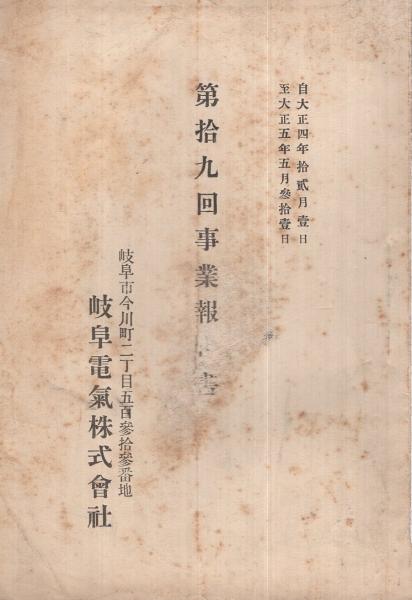 自大正四年拾貳月壹日
至大正五年五月參拾壹日
第拾九回事業報 書
岐阜市今川町二丁目五百參拾參番地
岐阜電氣株式會社